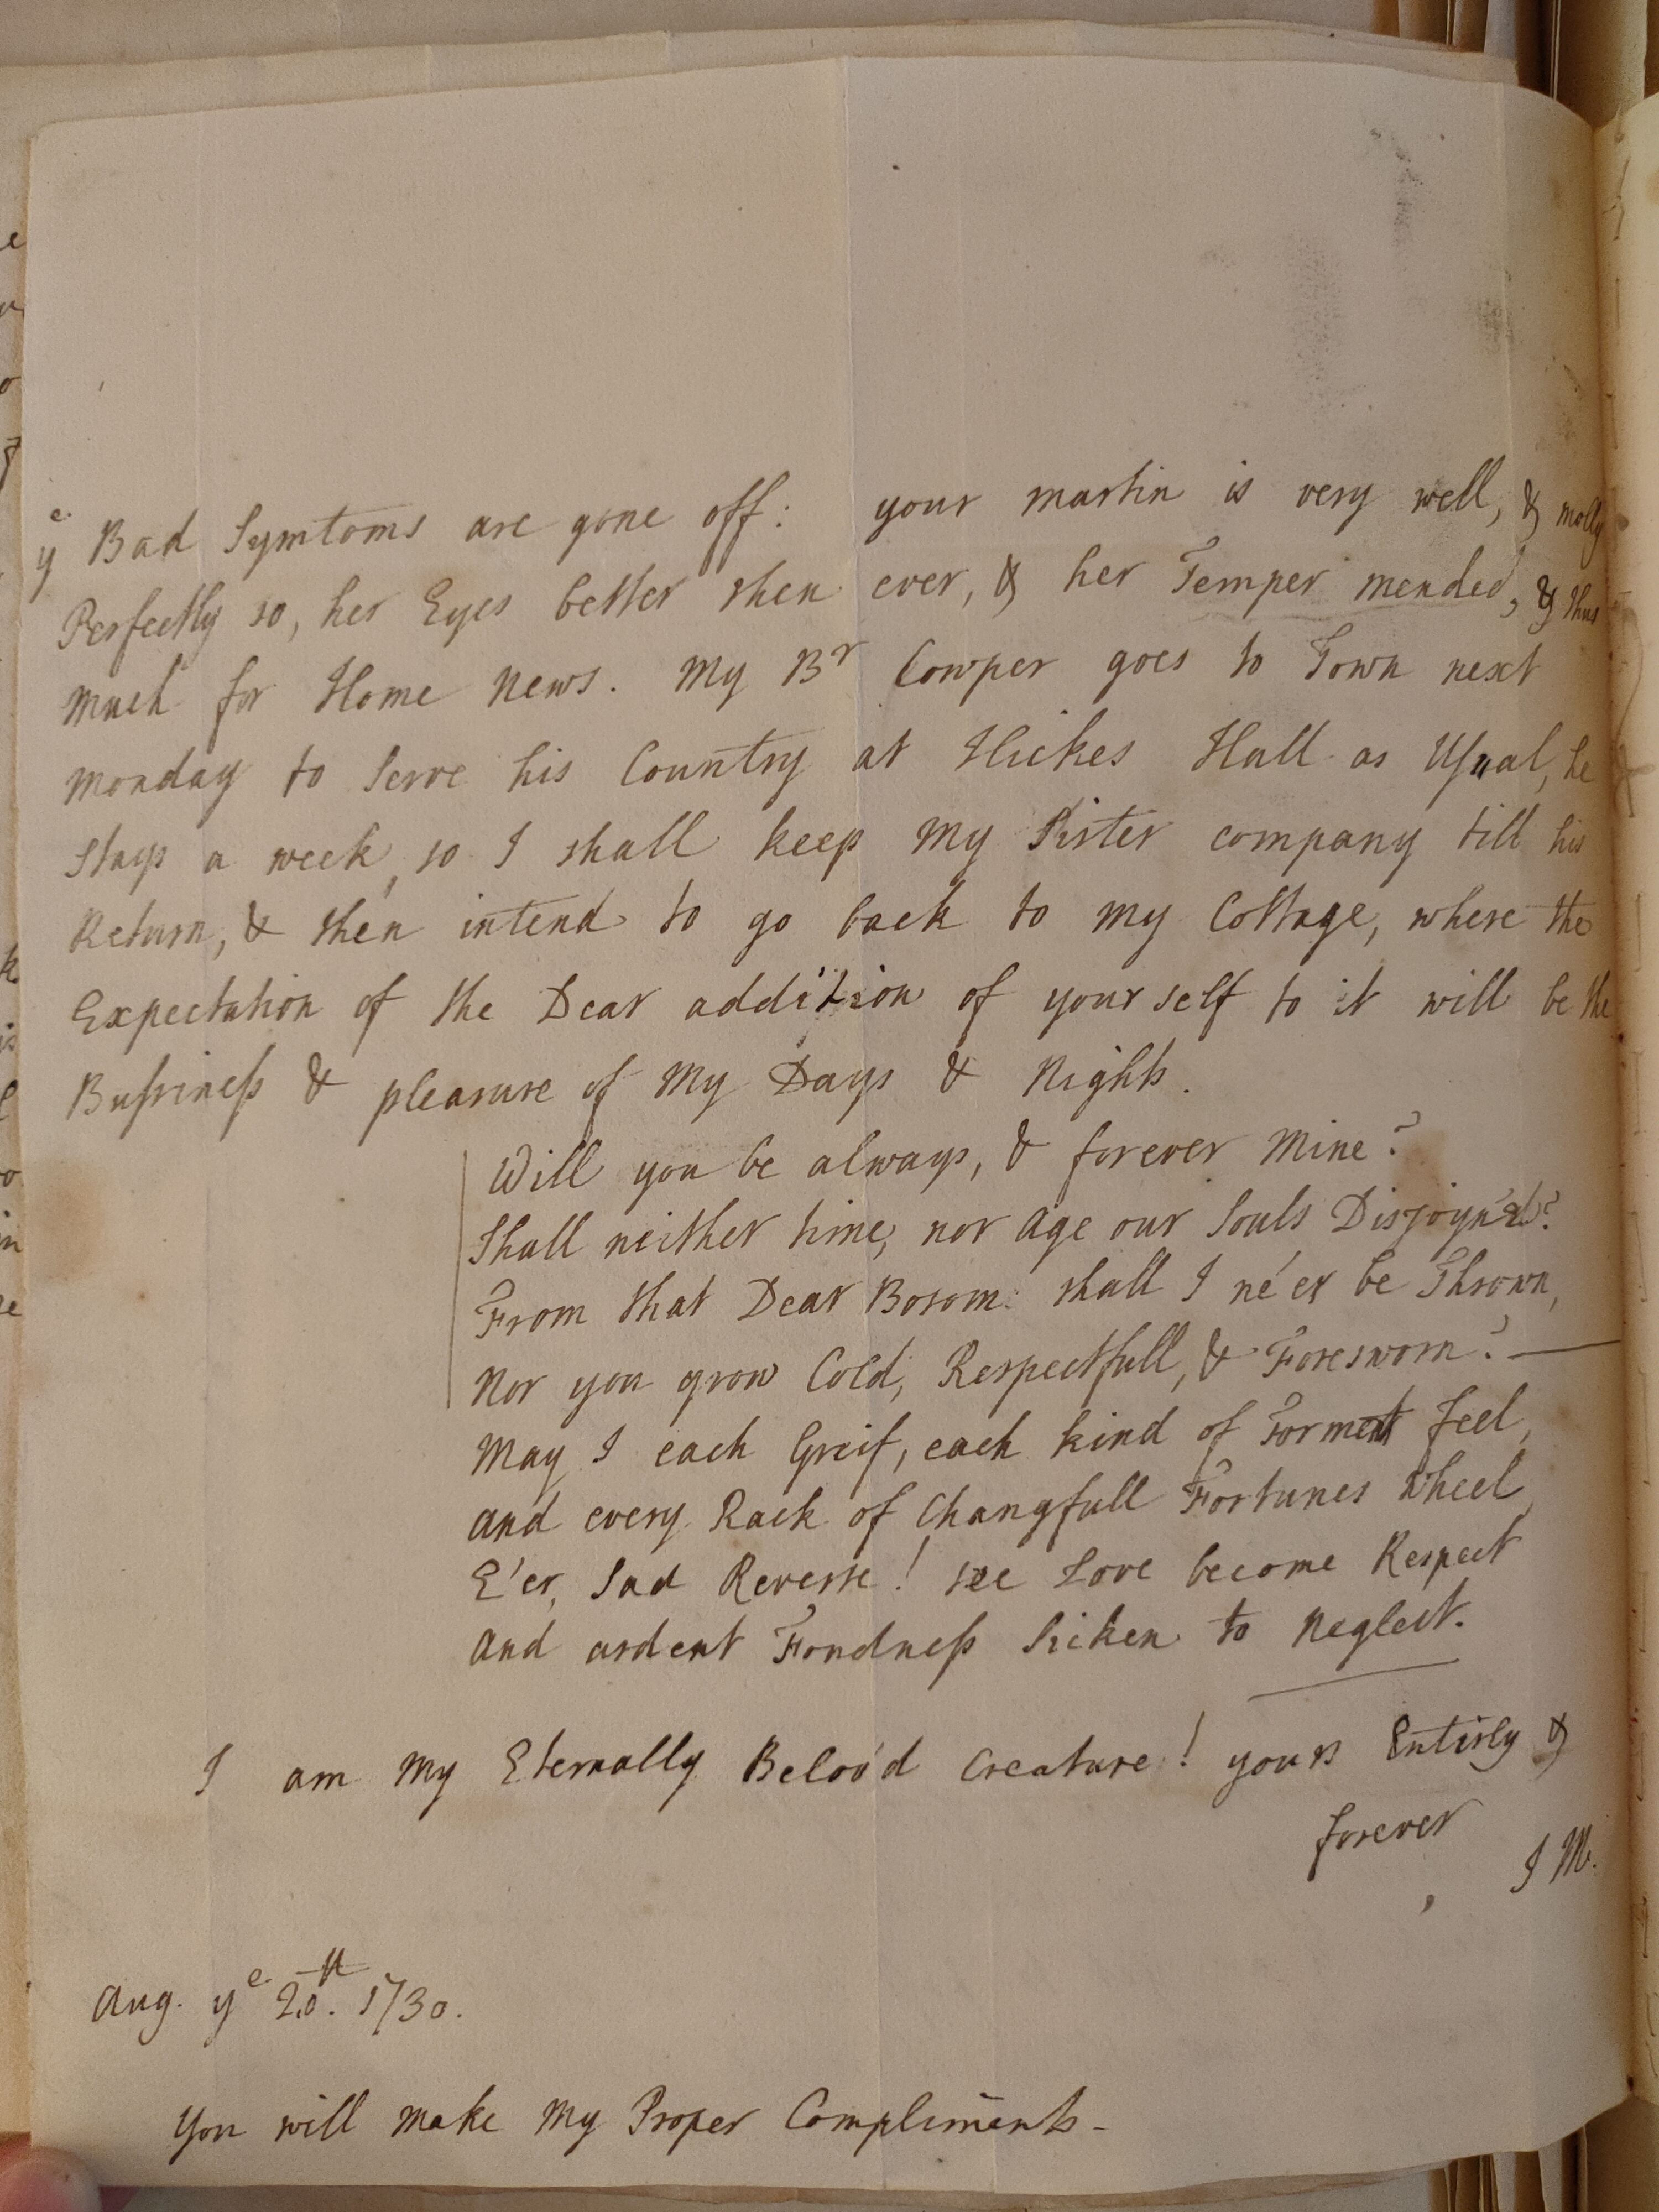 yᵉ Bad Symtoms are gone off: your martin is very well, & molly
Perfectly so, her Eyes better then ever, & her Temper mended, & thus
much for Home News. My Bʳ Cowper goes to Town next
monday to Serve his Country at Hickes Hall as Usual, he
stays a week, so I shall keep My Sister company till his
Return, & then intend to go back to my Cottage, where the
Expectation of the Dear addition of your self to it will be the
Bussiness & pleasure of My Days & Nights.
Will you be always, & forever Mine?
Shall neither time, nor Age our Souls Disjoyn'd?
From that Dear Bosom shall I ne'er be Thrown,
Nor you grow Cold, Respectfull, & Foresworn? —
May I each Greif, each kind of Torment feel,
And every Rack of Changfull Fortunes Wheel,
E'er, Sad Reverse! see Love become Respect
And ardent Fondness Sicken to Neglect.
I am My Eternally Belov'd Creature! yours Entirly &
forever
J M.
Aug. yᵉ 20.ᵗʰ 1730.
You will make My Proper Compliments -